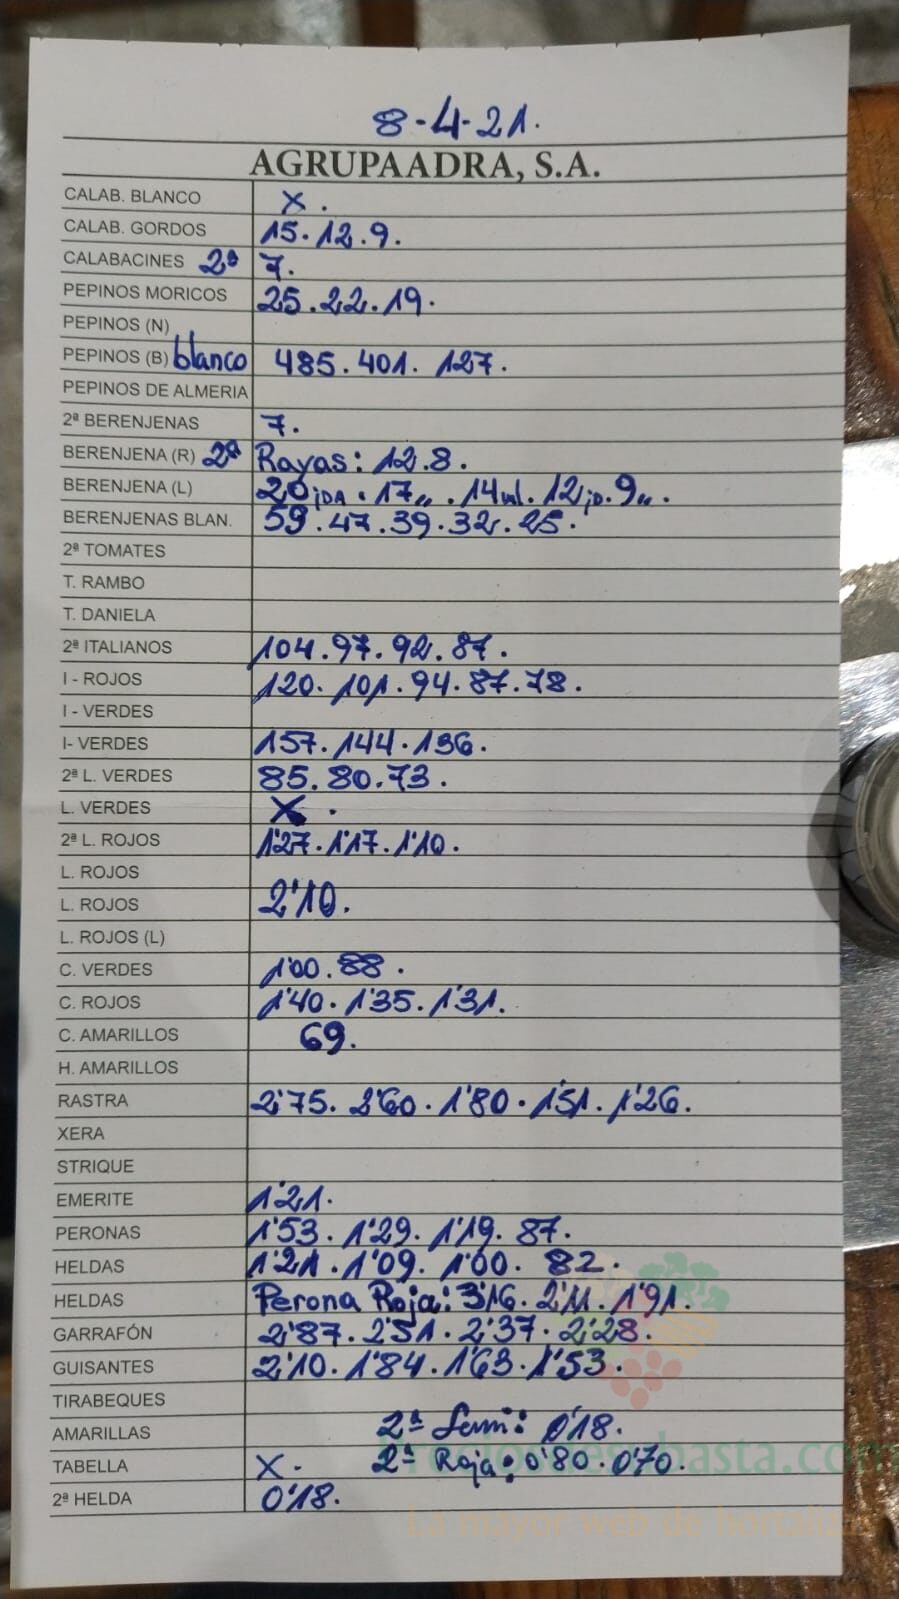 8-4-21.
AGRUPAADRA, S.A.
CALAB. BLANCO X.
CALAB. GORDOS 15.12.9.
CALABACINES 2ª 7.
PEPINOS MORICOS 25.22.19.
PEPINOS (N)
PEPINOS (B) blanco 485.401.127.
PEPINOS DE ALMERIA
2ª BERENJENAS 7.
BERENJENA (R) 2ª Rayas: 12.8.
BERENJENA (L) 20 jDA. 17 „. 14 ul. 12 jD. 9 „.
BERENJENAS BLAN. 59.47.39.32.25.
2ª TOMATES
T. RAMBO
T. DANIELA
2ª ITALIANOS 104.97.92.87.
I - ROJOS 120.101.94.87.78.
I - VERDES
I- VERDES 157.144.136.
2ª L. VERDES 85.80.73.
L. VERDES X.
2ª L. ROJOS 1'27.1'17.1'10.
L. ROJOS
L. ROJOS 2'10.
L. ROJOS (L)
C. VERDES 1'00.88.
C. ROJOS 1'40.1'35.1'31.
C. AMARILLOS 69.
H. AMARILLOS
RASTRA 2'75.2'60.1'80.1'51.1'26.
XERA
STRIQUE
EMERITE 1'21.
PERONAS 1'53.1'29.1'19.87.
HELDAS 1'21.1'09.1'00.82.
HELDAS Perona Roja: 3'16.2'11.1'91.
GARRAFÓN 2'87.2'51.2'37.2'28.
GUISANTES 2'10.1'84.1'63.1'53.
TIRABEQUES
AMARILLAS 2ª Semi: 0'18.
TABELLA X. 2ª Roja: 0'80.0'70.
2ª HELDA 0'18.
La mayor web de